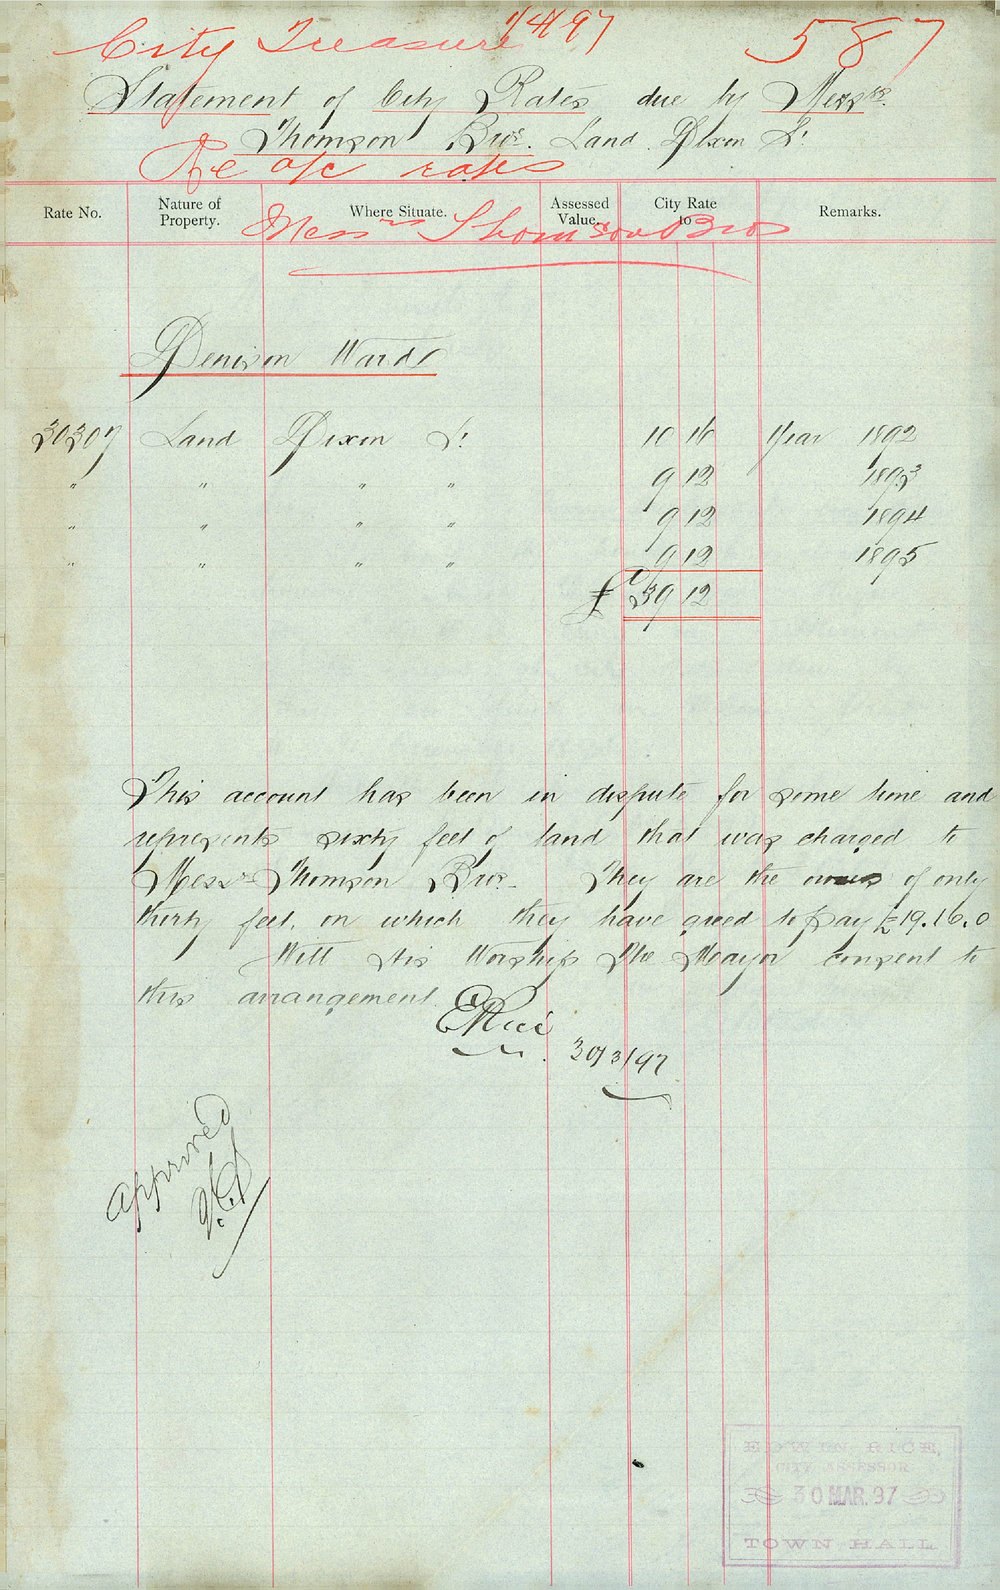 City Treasurer 1/4/97 587
Statement of City Rates due by Messrs.
Thomson Bros. Land Dixon St
Re a/c rates
Messrs Thomson Bros
Rate No. Nature of Property. Where Situate. Assessed Value. City Rate to Remarks.
Denison Ward
30307 Land Dixon St 10 16 Year 1892
" " " " 9 12 1893
" " " " 9 12 1894
" " " " 9 12 1895
£ 39 12
This account has been in dispute for some time and
represents sixty feet of land that was charged to
Messrs Thomson Bros. They are the owners of only
thirty feet, on which they have agreed to pay £19.16.0
Will His Worship the Mayor consent to
this arrangement.
ERice
30/3/97
Approved
EDWIN RICE,
CITY ASSESSOR
30 MAR. 97
TOWN HALL